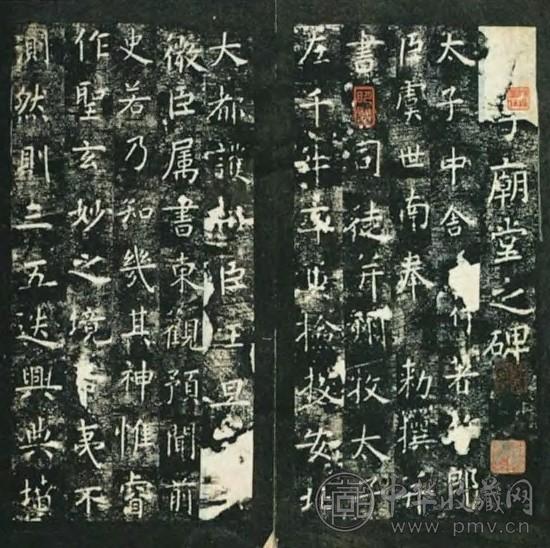 子廟堂之碑
太子中舍行著作郎
臣虞世南奉勑撰并
書司徒并州牧大子
左千牛率兼撿挍安北
大都護相臣王旦
微臣属書東觀預聞前
史若乃知幾其神惟睿
作聖玄妙之境希夷不
測然則三五迭興典墳
中华收藏网
www.pmv.cn